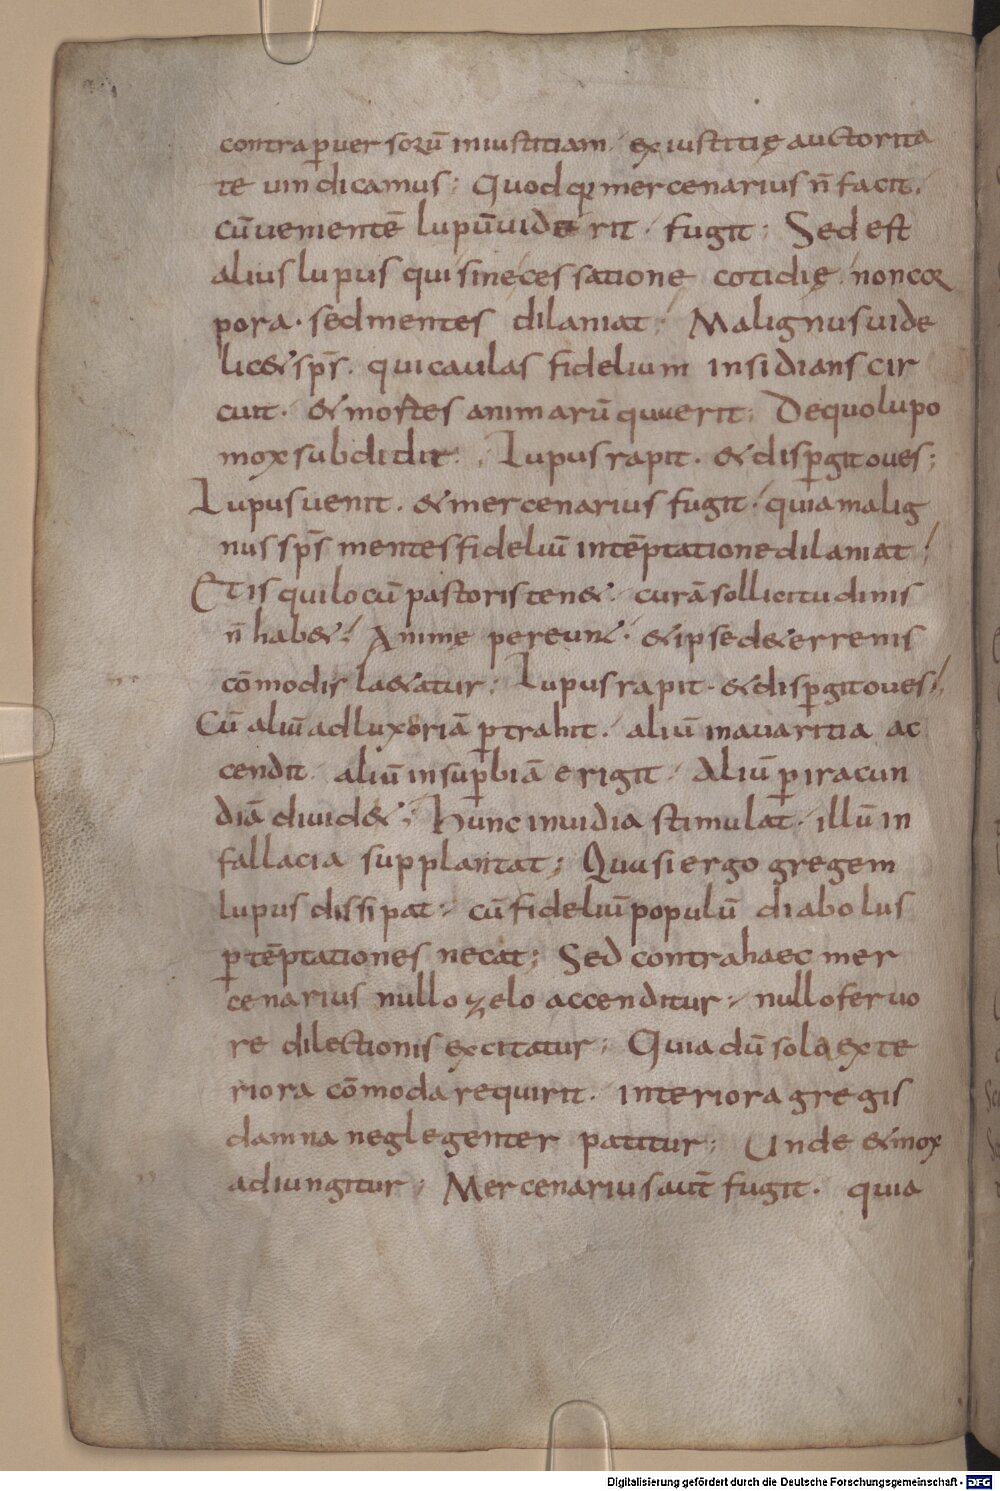 contra ꝑuersorū iniustitiam. ex iustitię auctorita
te uindicamus; Quod qꝛ mercenarius n̄ facit,
cū uenientē lupū uiderit fugit; Sed est
alius lupus qui sine cessatione cotidię non cor
pora. sed mentes dilaniat; Malignus uide
lic& sp̄s. qui caulas fidelium insidians cir
cuit. & mortes animarū querit; De quo lupo
mox subdidit; Lupus rapit. & disꝑgit oues;
Lupus uenit. & mercenarius fugit. quia malig
nus sp̄s mentes fideliū in tēptatione dilaniat;
Et is qui locū pastoris ten&. curā sollicitudinis
n̄ hab&; Animę pereunt. & ipse de terrenis
cōmodis la&atur; Lupus rapit. & disꝑgit oues;
Cū aliū ad luxoriā ꝑtrahit. aliū in auaritia ac
cendit. aliū in suꝑbiā erigit. Aliū ꝑ iracun
diā diuid&; Hunc inuidia stimulat. illū in
fallacia supplantat; Quasi ergo gregem
lupus dissipat. cū fideliū populū diabolus
ꝑ tēptationes necat; Sed contra haec mer
cenarius nullo zelo accenditur. nullo feruo
re dilectionis excitatur; Quia dū sola exte
riora cōmoda requirit. interiora gregis
damna neglegenter patitur; Unde & mox
adiungitur; Mercenarius aut̄ fugit. quia
Digitalisierung gefördert durch die Deutsche Forschungsgemeinschaft - DFG